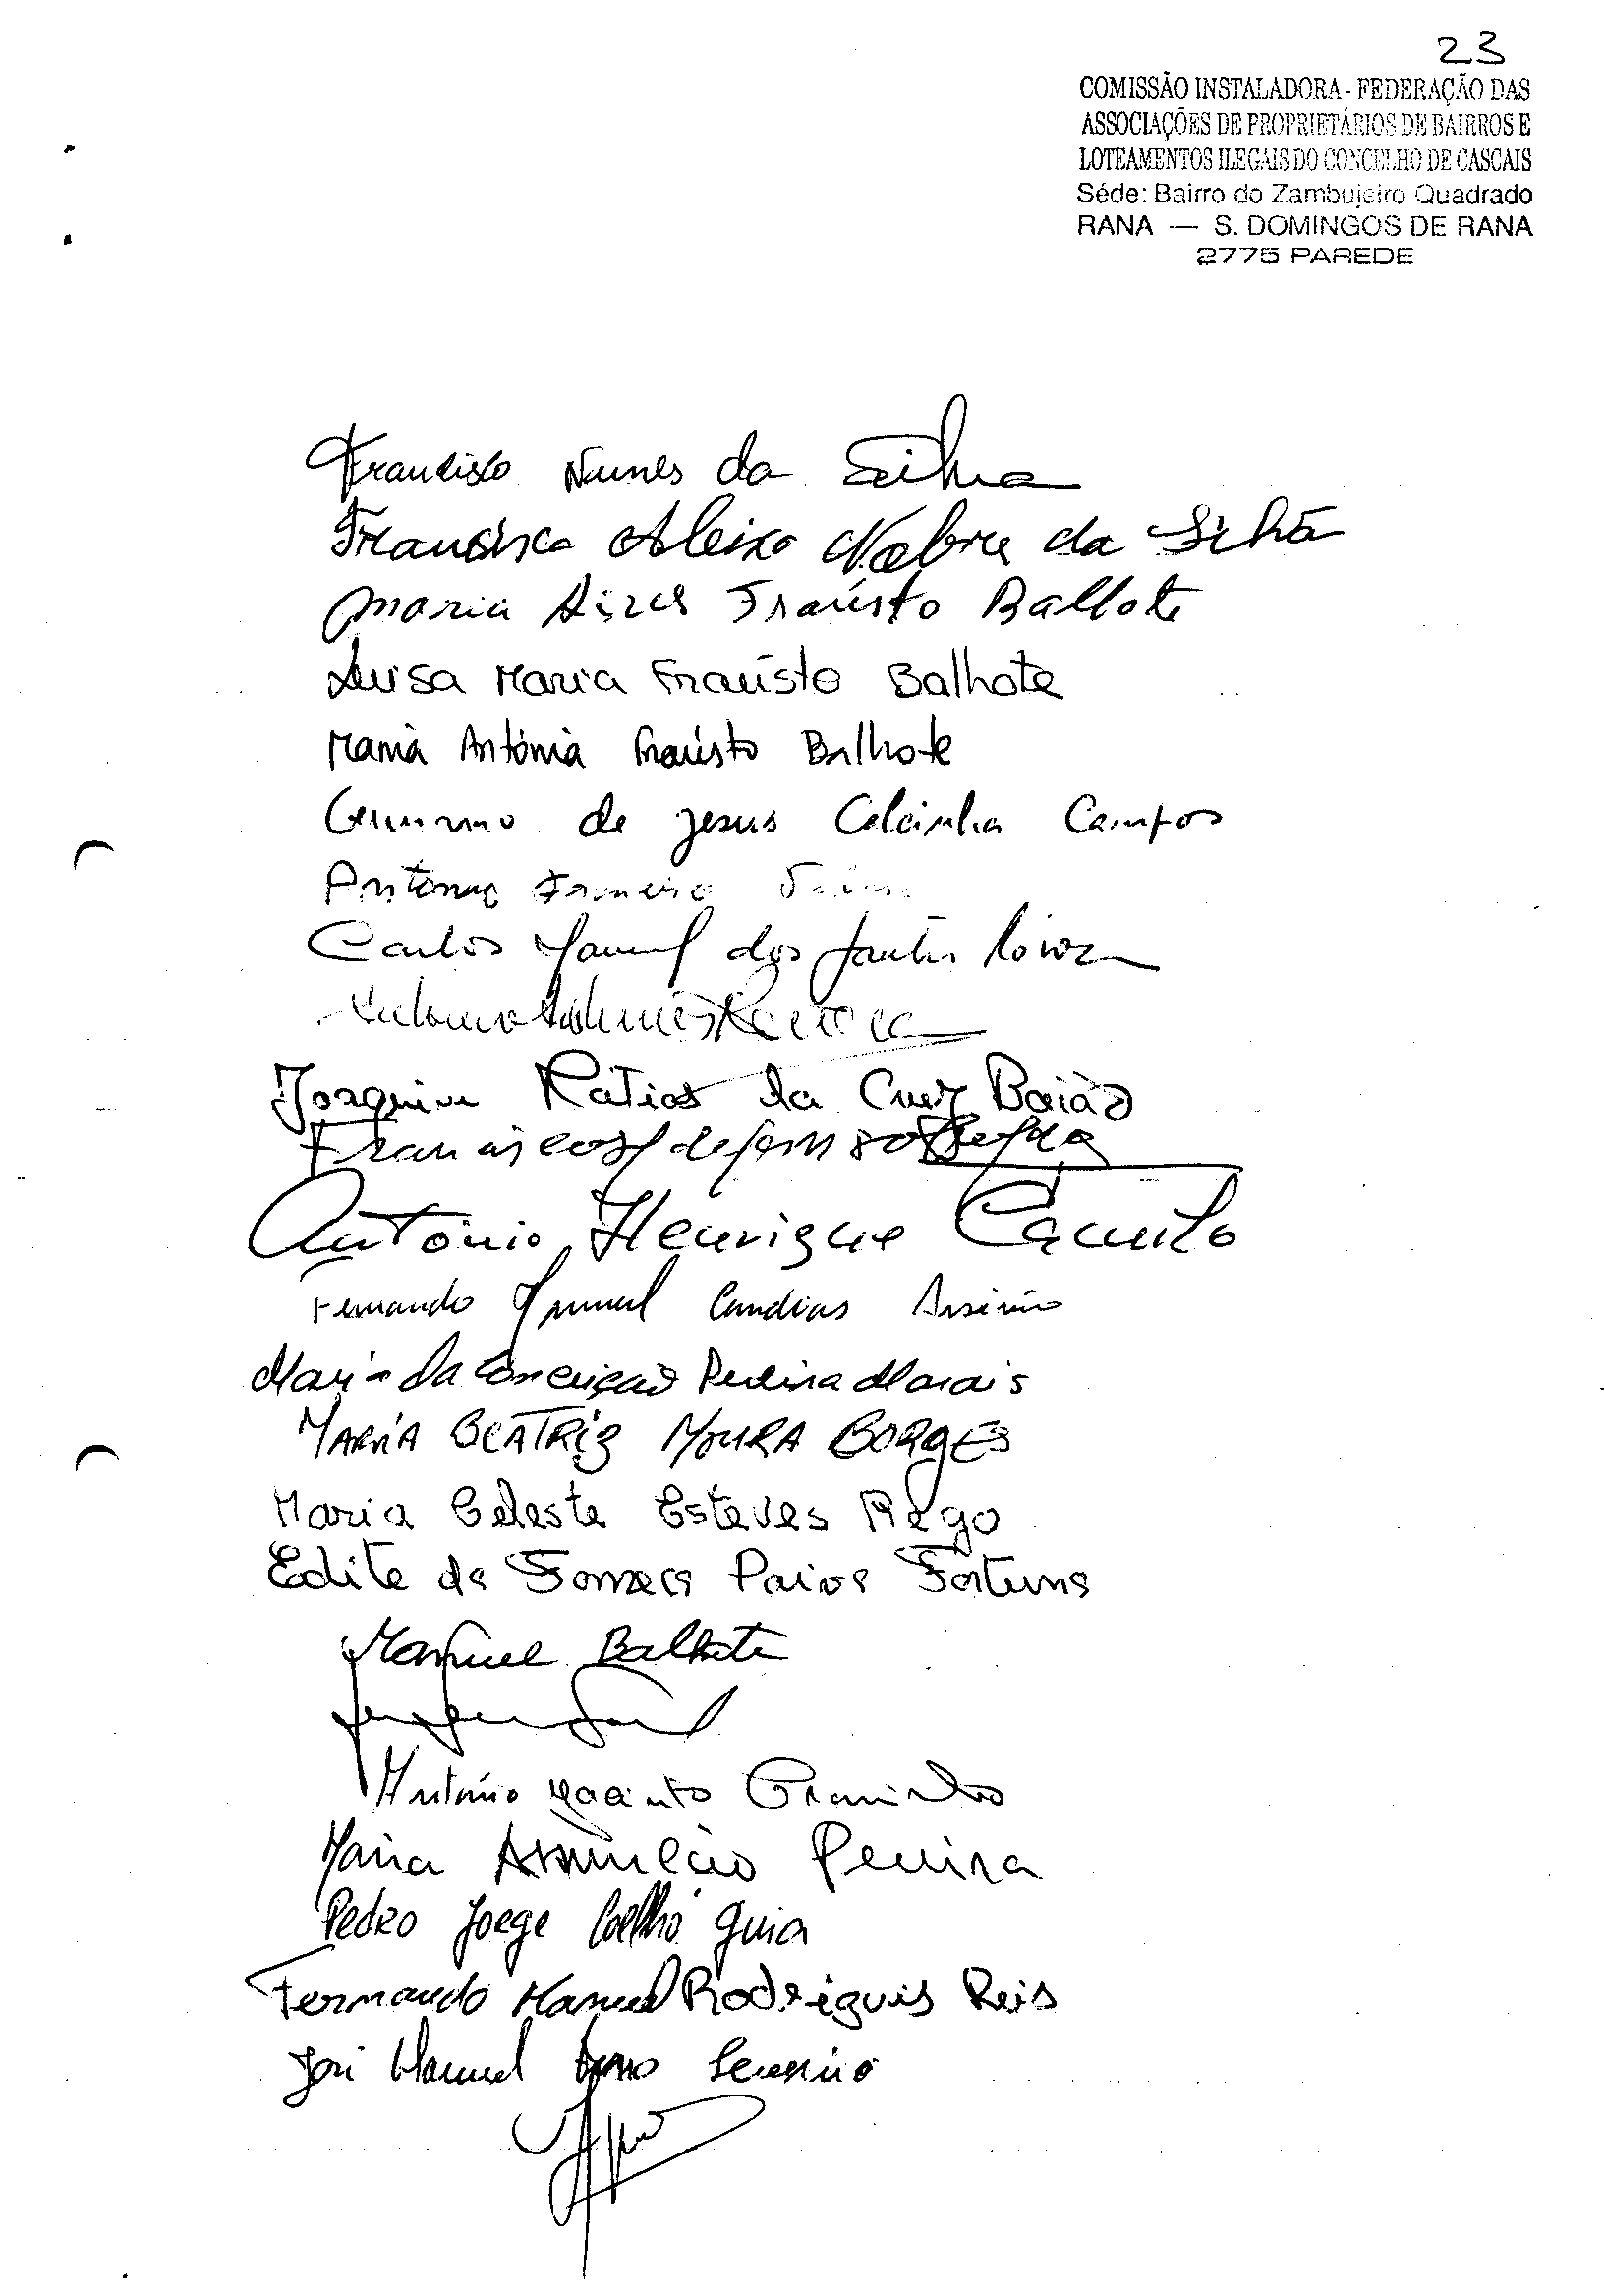 23
COMISSÃO INSTALADORA - FEDERAÇÃO DAS
ASSOCIAÇÕES DE PROPRIETÁRIOS DE BAIRROS E
LOTEAMENTOS ILEGAIS DO CONCELHO DE CASCAIS
Séde: Bairro do Zambujeiro Quadrado
RANA — S. DOMINGOS DE RANA
2775 PAREDE
Francisco Nunes da Silva
Francisca Aleixo Nobre da Silva
Maria Aires Fraústo Ballote
Luisa Maria Fraústo Balhote
Maria Antónia Fraústo Balhote
de Jesus Campos
António
Carlos Manuel dos Santos
Joaquim Matias da Cruz Baião
António Henrique Camilo
Fernando Manuel Candias
Maria da Conceição Pereira Morais
MARIA BEATRIZ MOURA BORGES
Maria Celeste Esteves Rego
Edite da Fonseca Paiva Fortuna
Manuel Balhote
António Jacinto Graminho
Maria Assunção Pereira
Pedro Jorge Coelho Guia
Fernando Manuel Rodriguis Reis
José Manuel